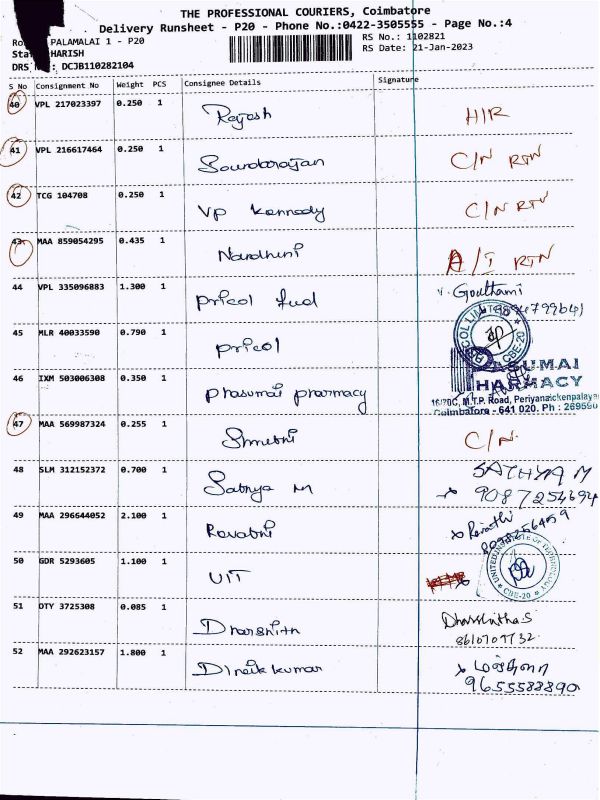 THE PROFESSIONAL COURIERS, Coimbatore
Delivery Runsheet - P20 - Phone No.:0422-3505555 - Page No.:4
PALAMALAI 1 - P20
RS No.: 1102821
HARISH
RS Date: 21-Jan-2023
DRS : DCJB110282104
S No Consignment No Weight PCS Consignee Details Signature
40 VPL 217023397 0.250 1 Rajesh H/R
41 VPL 216617464 0.250 1 Soundarajan C/N RTN
42 TCG 104708 0.250 1 VP Kennedy C/N RTN
43 MAA 859054295 0.435 1 Nandhini A/I RTN
44 VPL 335096883 1.300 1 Pricol fud Gouthami
45 MLR 40033590 0.790 1 Pricol
46 IXM 503006308 0.350 1 Phasumai pharmacy
PASUMAI
PHARMACY
16/20C, M.T.P. Road, Periyanaickenpalaya
Coimbatore - 641 020. Ph : 269590
47 MAA 569987324 0.255 1 C/N
48 SLM 312152372 0.700 1 Sathya M SATHYA M
9087254694
49 MAA 296644052 2.100 1 Revathi Revathi
50 GDR 5293605 1.100 1 UIT
UNITED INSTITUTE OF TECHNOLOGY
CBE-20
51 DTY 3725308 0.085 1 Dharshith
8610707732
52 MAA 292623157 1.800 1 Dinesh kumar
9655588890